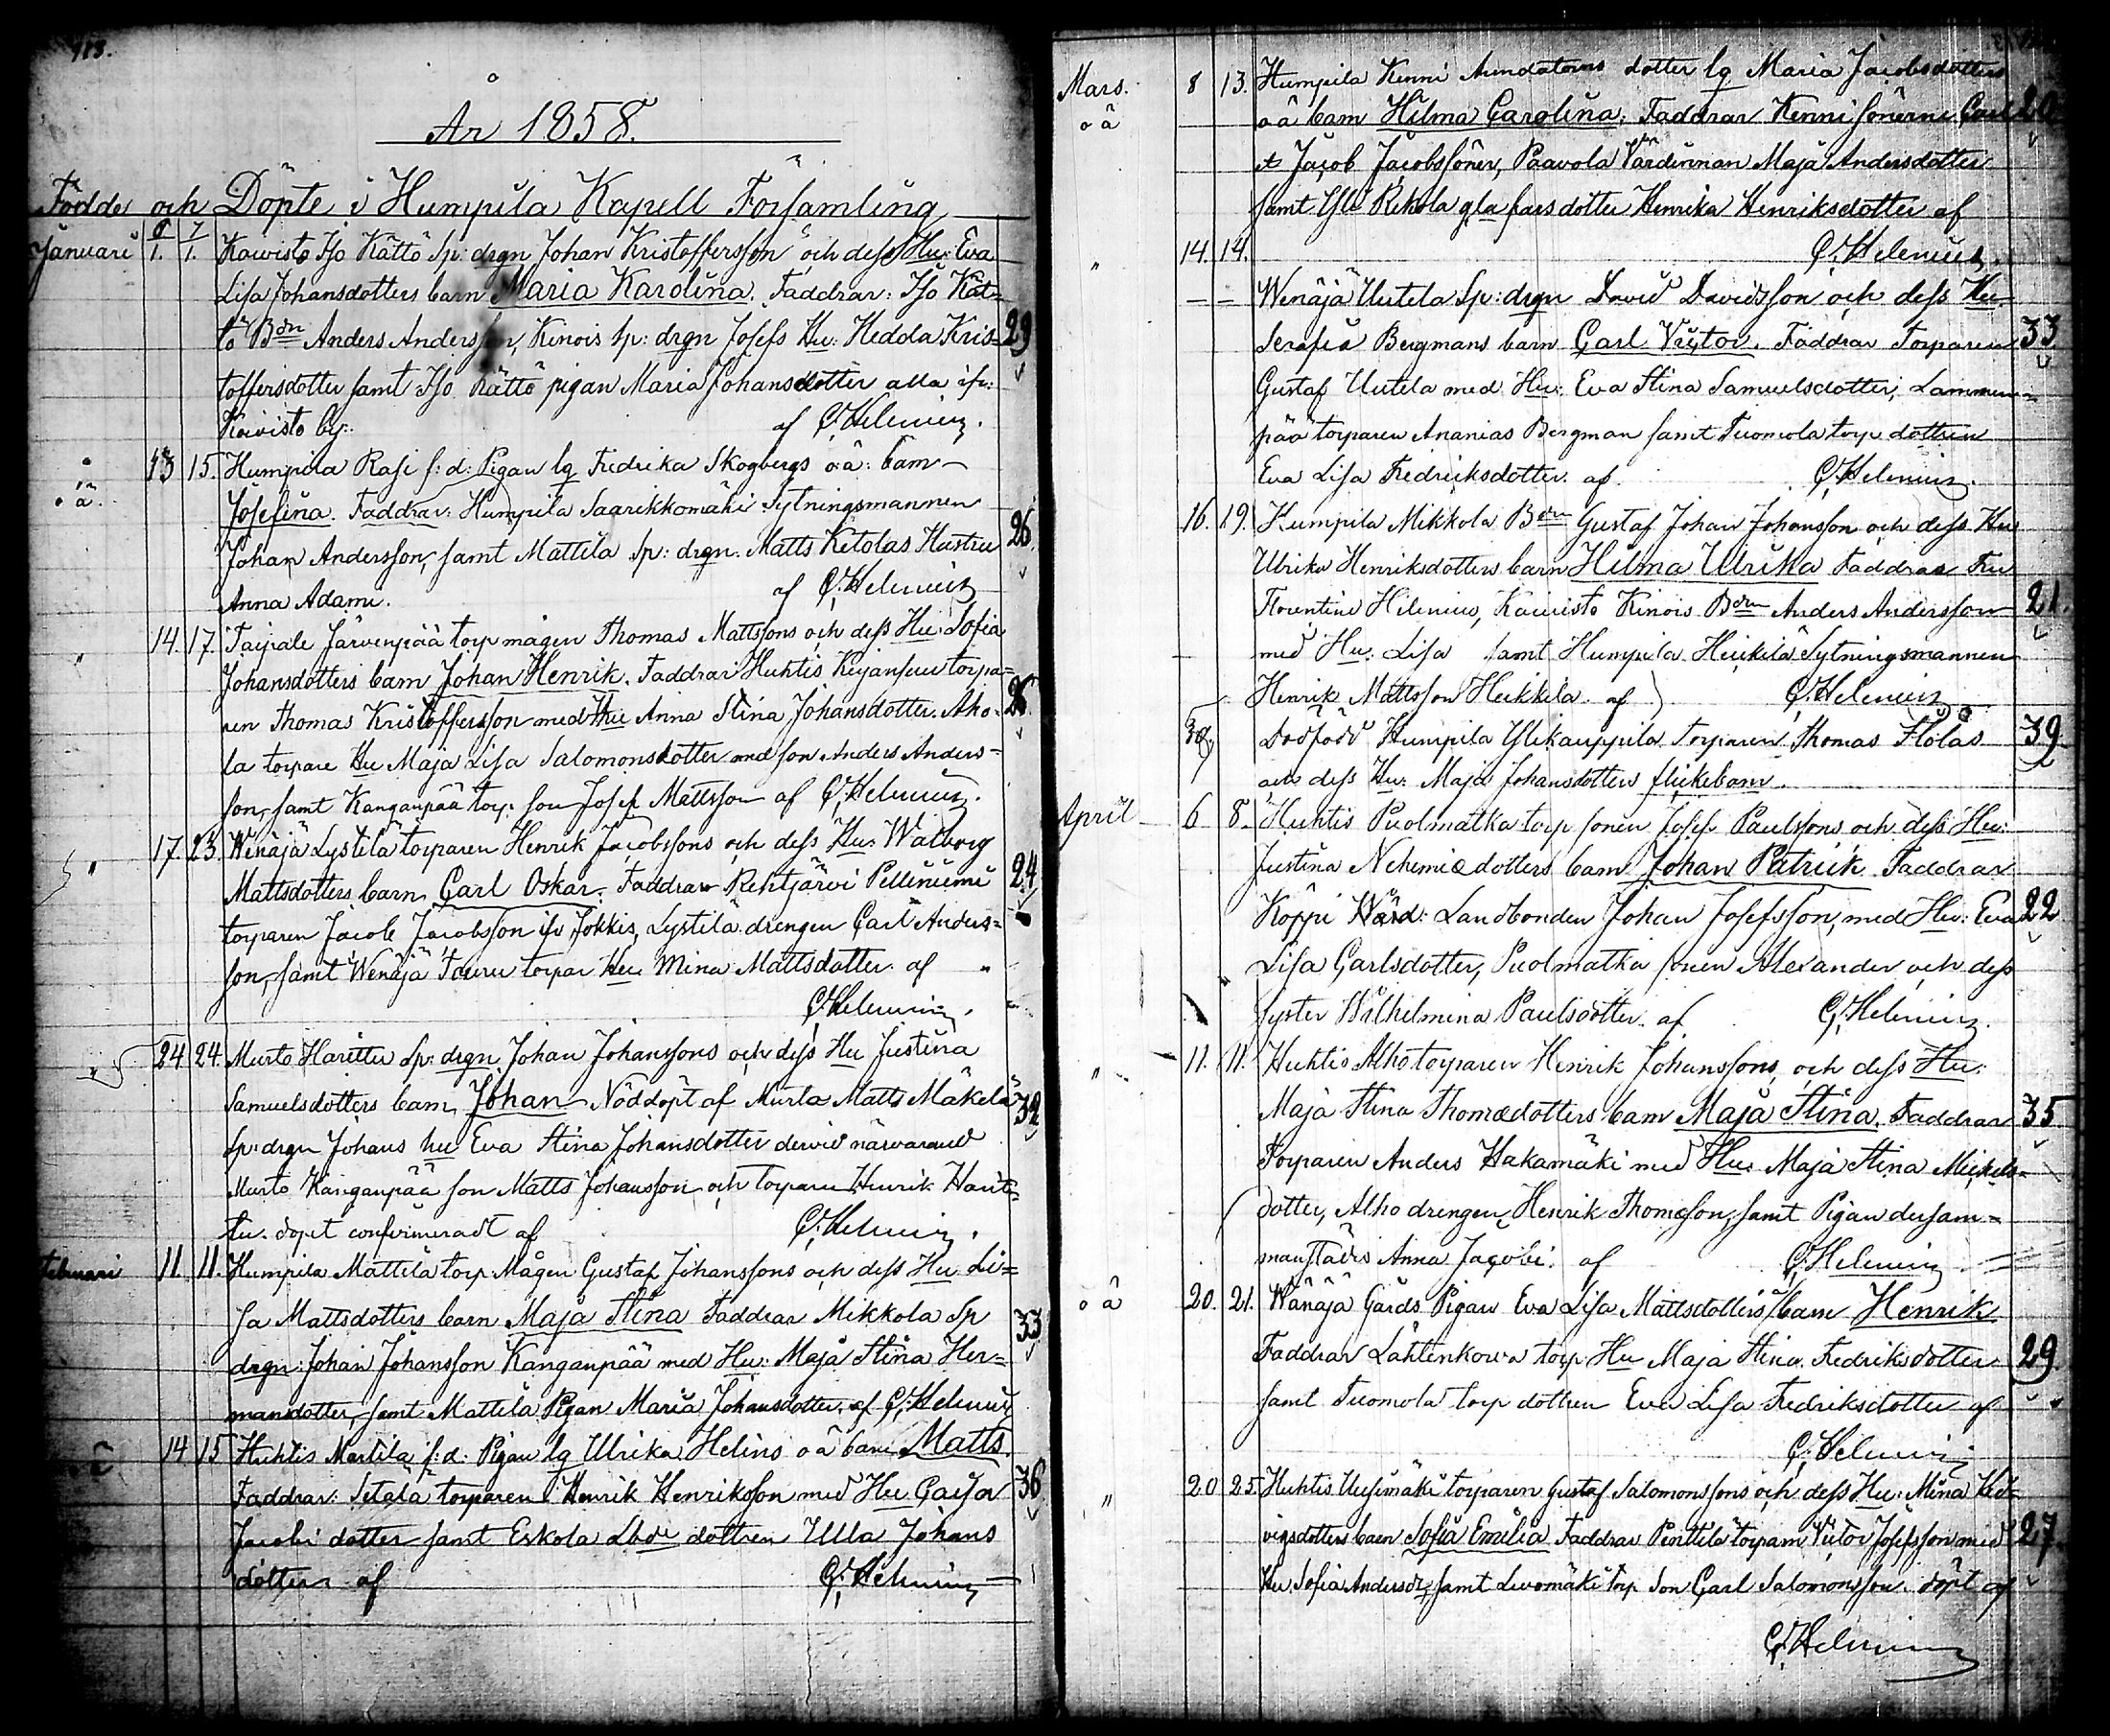 113.
År 1858.
Födde och Döpte i Humpila Kapell Församling
Januari 1. 1. Koivisto Iso Kättö Sp: drgn Johan Kristoffersson och dess Hu: Eva
Lisa Johansdotters barn Maria Karolina. Faddrar: Iso Kät=
tö Bdn Anders Andersson, Kinois sp: drgn Josefs Hu: Hedda Kris= 29
toffersdotter samt Iso Kättö pigan Maria Johansdotter alla ifr:
Koivisto by: af C. Helenius.
o ä. 13 15. Humpila Rasi f: d: Pigan lg Fredrika Skogbergs o: ä: barn
Josefina. Faddrar: Humpila Saarikkomäki Sytningsmannen
Johan Andersson, samt Mattila Sp: drgn. Matts Ketolas Hustru 26.
Anna Adami. af C. Helenius
" 14. 17. Taipale Järvenpää torp mågen Thomas Mattssons och dess Hu: Sofia
Johansdotters barn Johan Henrik. Faddrar Huhtis Kujansuu torpa=
ren Thomas Kristoffersson med Hu Anna Stina Johansdotter. Aho=
la torpare Hu Maja Lisa Salomonsdotter med son Anders Anders=
son, samt Kanganpää torp: son Josef Mattsson af C. Helenius.
" 17. 23. Wenäjä Lystilä torparen Henrik Jacobssons och dess Hu: Walborg
Mattsdotters barn Carl Oskar. Faddrar Rehtjärvi Pelliniemi 24
torparen Jacob Jacobsson ifr Jokkis, Lystilä drengen Carl Anders=
son, samt Wenäjä Touru torpar Hu: Mina Mattsdotter. af
C. Helenius.
" 24 24. Murto Harittu Sp: drgn. Johan Johanssons och dess Hu Justina
Samuelsdotters barn, Johan Nöddöpt af Murto Matts Mäkelä 32
Sp: drgn Johans hu Eva Stina Johansdotter dervid närvarande
Murto Kanganpää son Matts Johansson och torparen Henrik Harit=
tu. döpet confirmeradt af C. Helenius.
Februari 11. 11. Humpila Mattila torp Mågen Gustaf Johanssons och dess Hu Li=
sa Mattsdotters barn Maja Stina Faddrar Mikkola Sp 33
drgn: Johan Johansson Kanganpää med Hu: Maja Stina Her=
mansdotter, samt Mattila Pigan Maria Johansdotter, af C. Helenius
o ä 14 15 Huhtis Martila f: d: Pigan lg Ulrika Helins o ä barn Matts.
Faddrar: Setälä torparen Henrik Henriksson med Hu Cajsa 36
Jacobi dotter samt Eskola Lbde dottren Ulla Johans
dotter. af C. Helenius
Mars. 8 13. Humpila Kenni Arrendatorns dotter lg Maria Jacobsdotters
o ä o ä barn Hilma Carolina: Faddrar Kenni sönerne Carl 20
et Jacob Jacobssöner, Paavola Värdinnan Maja Andersdotter
samt Yli Rekola gla fars dotter Henrika Henriksdotter af
" 14. 14. C. Helenius.
Wenäjä Uutela Sp: drgn David Davidsson och dess Hu
Serafia Bergmans barn Carl Victor. Faddrar Torparen 33.
Gustaf Uutela med Hu: Eva Stina Samuelsdotter, Lammin=
pää torparen Ananias Bergman samt Tuomola torp dottren
Eva Lisa Fredriksdotter. af C. Helenius.
16. 19. Humpila Mikkola Bdn Gustaf Johan Johansson och dess Hu
Ulrika Henriksdotters barn Hilma Ulrika Faddrar Fru
Florentine Helenius, Koivisto Kinois Bdn Anders Andersson 21.
med Hu: Lisa samt Humpila Heikkilä Sytningsmannen
Henrik Mattsson Heikkilä. af C. Helenius
Dödfödd Humpila Ylikauppila Torparen Thomas Flolas 39
och dess Hu: Maja Johansdotters flickebarn.
April 6 8. Huhtis Puolmatka torp sonen Josef Paulssons och dess Hu:
Justina Nehemiædotters barn Johan Patrick Faddrar
Koppi Landbonden Johan Josefsson, med Hu: Eva 22
Lisa Carlsdotter, Puolmatka sonen Alexander och dess
syster Wilhelmina Paulsdotter. af C. Helenius.
" 11. 11. Huhtis Alho torparen Henrik Johanssons och dess Hu:
Maja Stina Thomædotters barn Maja Stina. Faddrar 35.
Torparen Anders Hakamäki med Hu: Maja Stina Mickels=
dotter, Alho drengen Henrik Thomæson, samt Pigan dersam=
manstädes Anna Jacobi. af C. Helenius.
o ä 20. 21. Wänäjä Gårds Pigan Eva Lisa Mattsdotters barn Henrik
Faddrar Lähtenkorva torp: Hu Maja Stina Fredriksdotter 29.
samt Tuomola torp dottren Eva Lisa Fredriksdotter af
C. Helenius
" 20 25. Huhtis Uusimäki torparen Gustaf Salomonssons och dess Hu: Mina Hed=
vigsdotters barn Sofia Emilia Faddrar Perttilä torparn Victor Josefsson med 27.
Hu. Sofia Andersdr, samt Levomäki torp son Carl Salomonsson. döpt af
C. Helenius